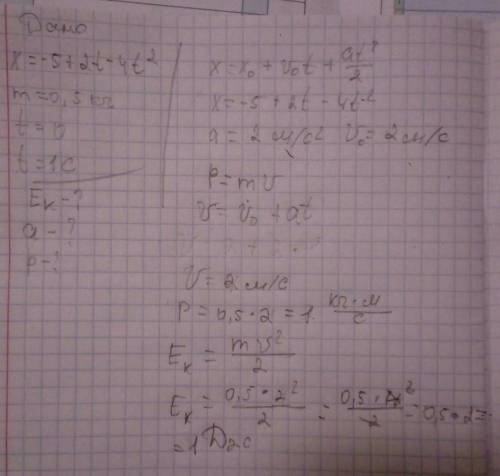 Дано
x=-5+2t-4t²
m=0,5 кг
t=0
t=1c
Eк-?
a-?
p-?
x=x₀+v₀t+at²/2
x=-5+2t-4t²
a=2 м/с² v₀=2м/с
P=mv
v=v₀+at
V=2м/с
P=0,5·2=1 кг·м/с
Eк=mv²/2
Eк=0,5·2²/2=0,5·2²/2=0,5·2=
=1Дж